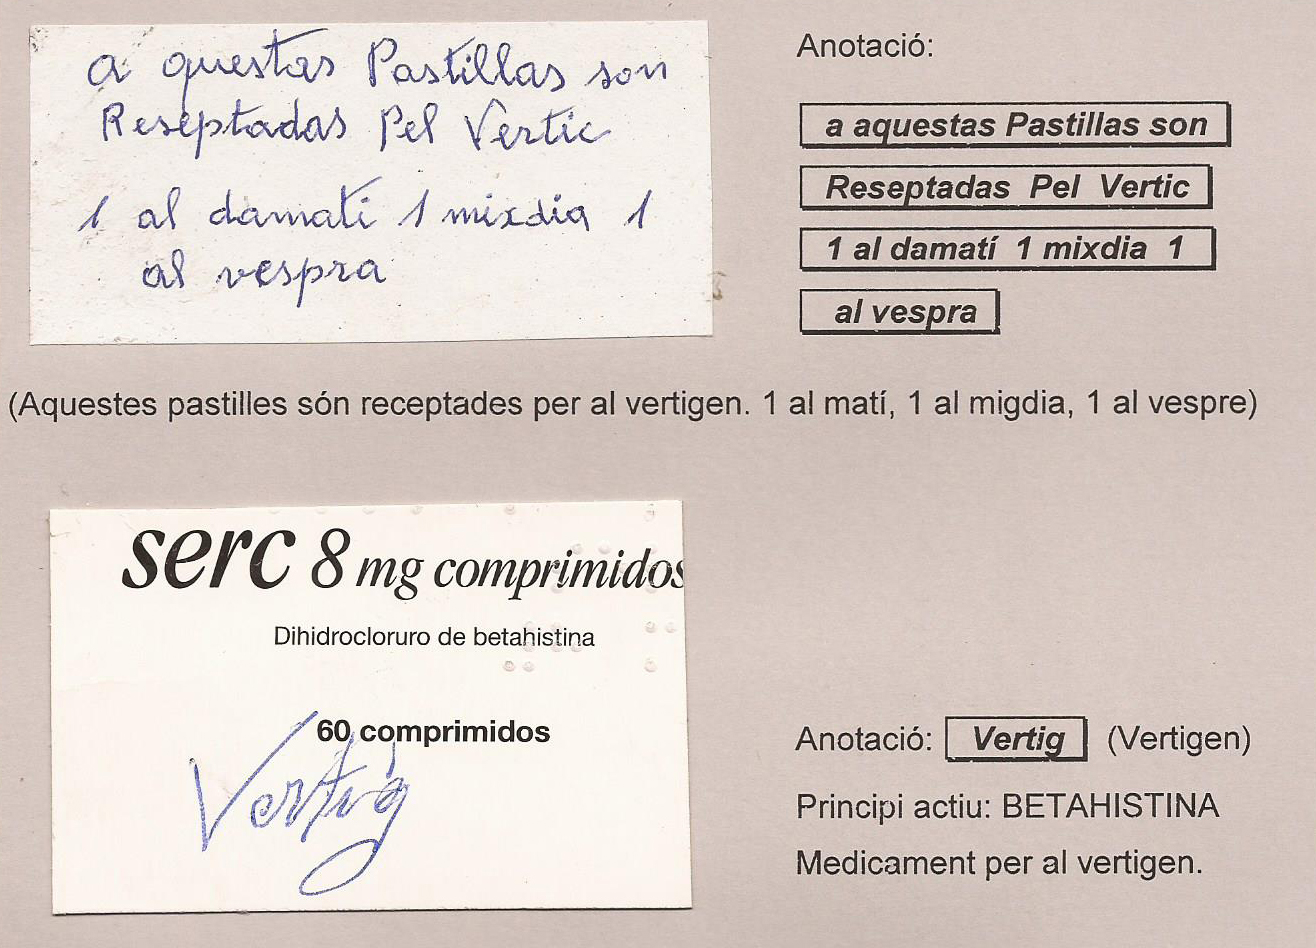 a questas Pastillas son
Reseptadas Pel Vertic
1 al damatí 1 mixdia 1
al vespra
Anotació:
a aquestas Pastillas son
Reseptadas Pel Vertic
1 al damatí 1 mixdia 1
al vespra
(Aquestes pastilles són receptades per al vertigen. 1 al matí, 1 al migdia, 1 al vespre)
serc 8 mg comprimidos
Dihidrocloruro de betahistina
60 comprimidos
Vertig
Anotació: Vertig (Vertigen)
Principi actiu: BETAHISTINA
Medicament per al vertigen.